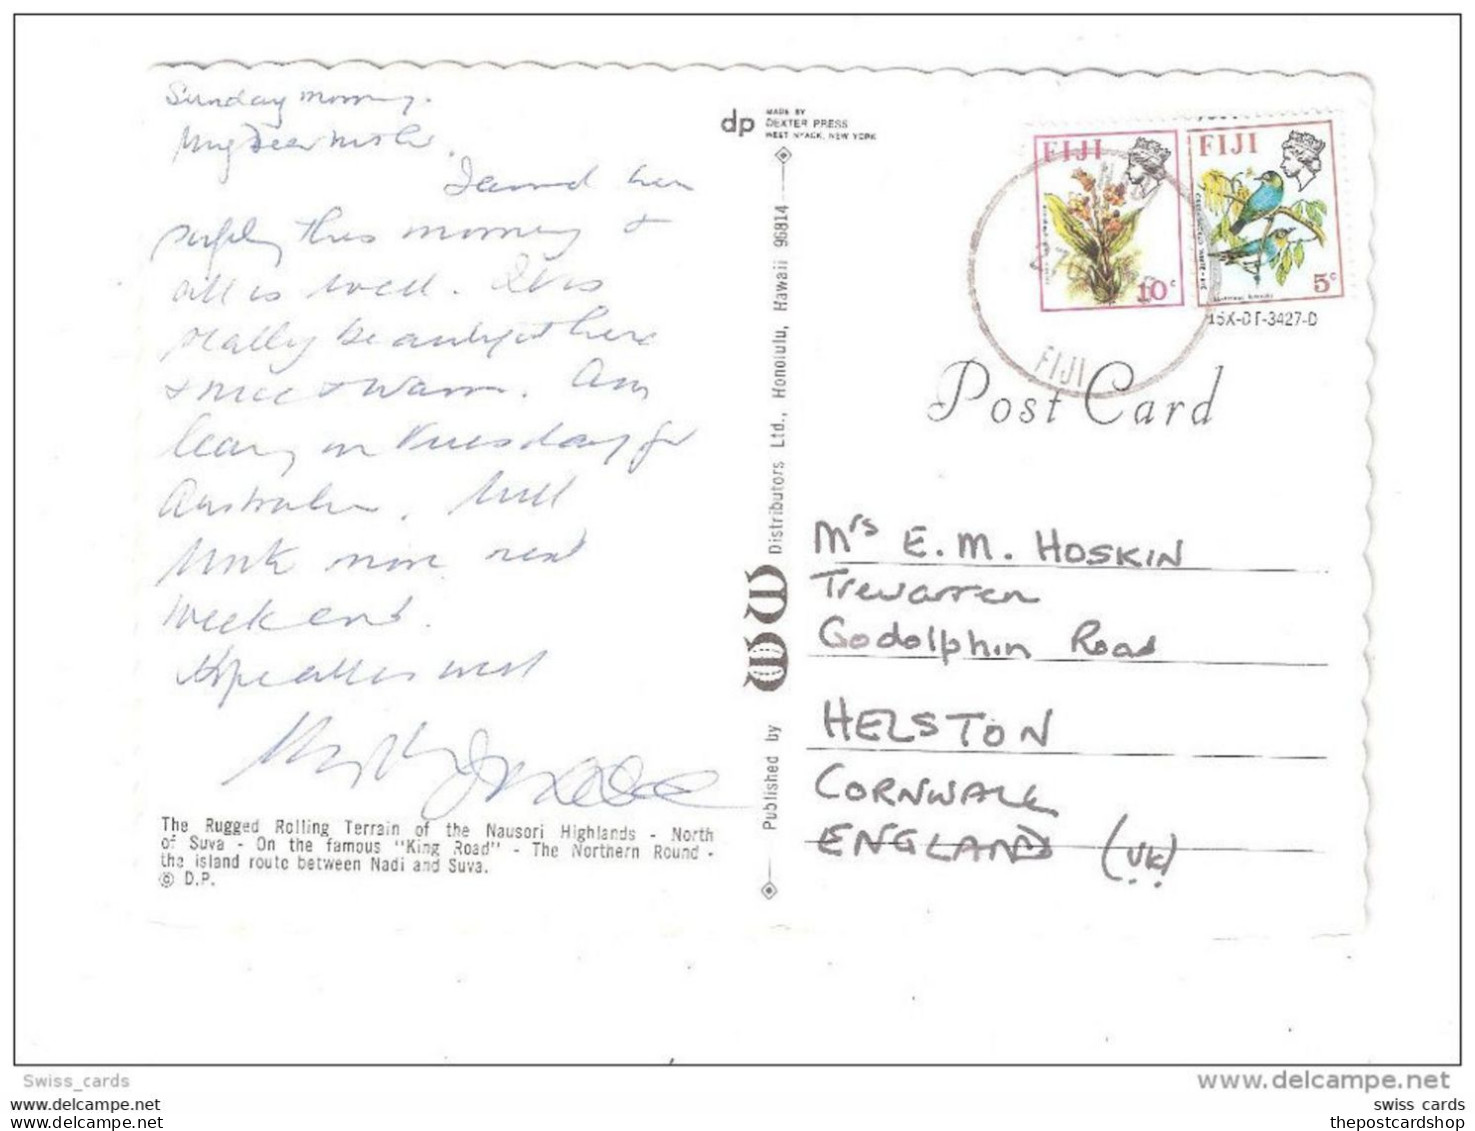 Sunday morning.
My Dear Mother,
Arrived here
safely this morning &
all is well. It is
really beautiful here
& nice & warm. Am
leaving on Tuesday for
Australia. Will
write more next
weekend.
Hope all is well
The Rugged Rolling Terrain of the Nausori Highlands - North
of Suva - On the famous "King Road" - The Northern Round -
the island route between Nadi and Suva.
© D.P.
dp MADE BY
DEXTER PRESS
WEST NYACK, NEW YORK
Published by WW Distributors Ltd., Honolulu, Hawaii 96814
FIJI
10c
FIJI
5c
FIJI
15X-DT-3427-D
Post Card
Mrs E. M. HOSKIN
Trewarren
Godolphin Road
HELSTON
CORNWALL
ENGLAND (UK)
Swiss_cards
www.delcampe.net
swiss cards
thepostcardshop
swiss cards
thepostcardshop